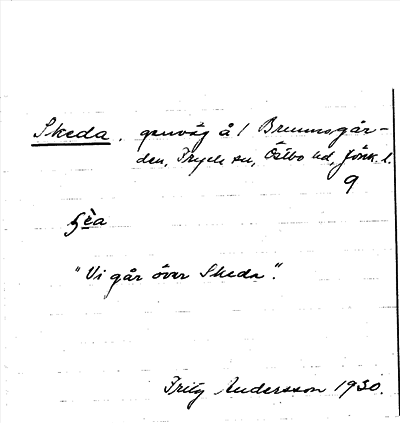 Skeda. genväg å / Brunnsgår-
den, Tryck sn, Östbo hd, Jönk. l.
9
ʂèa
"Vi går över Skeda".
Fritz Andersson 1930.